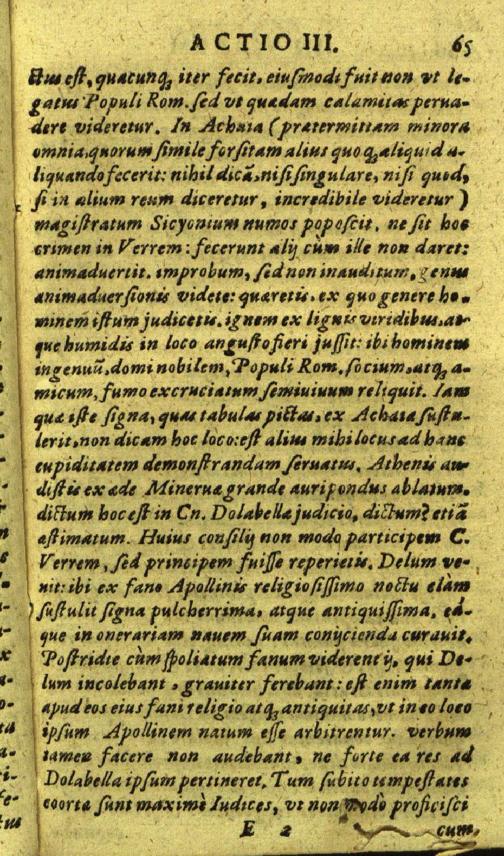 ACTIO III. 65
ctus est, quacunq; iter fecit. eiusmodi fuit non vt le-
gatus Populi Rom. sed vt quædam calamitas perua-
dere videretur. In Achaia (prætermittam minora
omnia, quorum simile forsitam alius quoq; aliquid a-
liquando fecerit: nihil dicā, nisi singulare, nisi quod,
si in alium reum diceretur, incredibile videretur)
magistratum Sicyonium numos poposcit, ne sit hoc
crimen in Verrem: fecerunt alij cùm ille non daret:
animaduertit. improbum, sed non inauditum. genus
animaduersionis videte: quæretis. ex quo genere ho-
minem istum judicetis. ignem ex lignis viridibus. at-
que humidis in loco angusto fieri jussit: ibi hominem
ingenuū, domi nobilem, Populi Rom. socium, atq; a-
micum, fumo excruciatum semiuiuum reliquit. Iam
quæ iste signa, quas tabulas pictas, ex Achaia sustu-
lerit, non dicam hoc loco: est alius mihi locus ad hanc
cupiditatem demonstrandam seruatus. Athenis au-
distis ex æde Mineruæ grande auri pondus ablatum.
dictum hoc est in Cn. Dolabellæ judicio, dictum? etiā
æstimatum. Huius consilij non modo participem C.
Verrem, sed principem fuisse reperietis. Delum ve-
nit: ibi ex fano Apollinis religiosissimo noctu clàm
sustulit signa pulcherrima, atque antiquissima. eá-
que in onerariam nauem suam conijcienda curauit.
Postridie cùm spoliatum fanum viderent ij, qui De-
lum incolebant, grauiter ferebant: est enim tanta
apud eos eius fani religio atq; antiquitas, vt in eo loco
ipsum Apollinem natum esse arbitrentur. verbum
tamen facere non audebant, ne forte ea res ad
Dolabella ipsum pertineret. Tum subito tempestates
coortæ sunt maximè Iudices, vt non modò proficisci
E 2 cum,